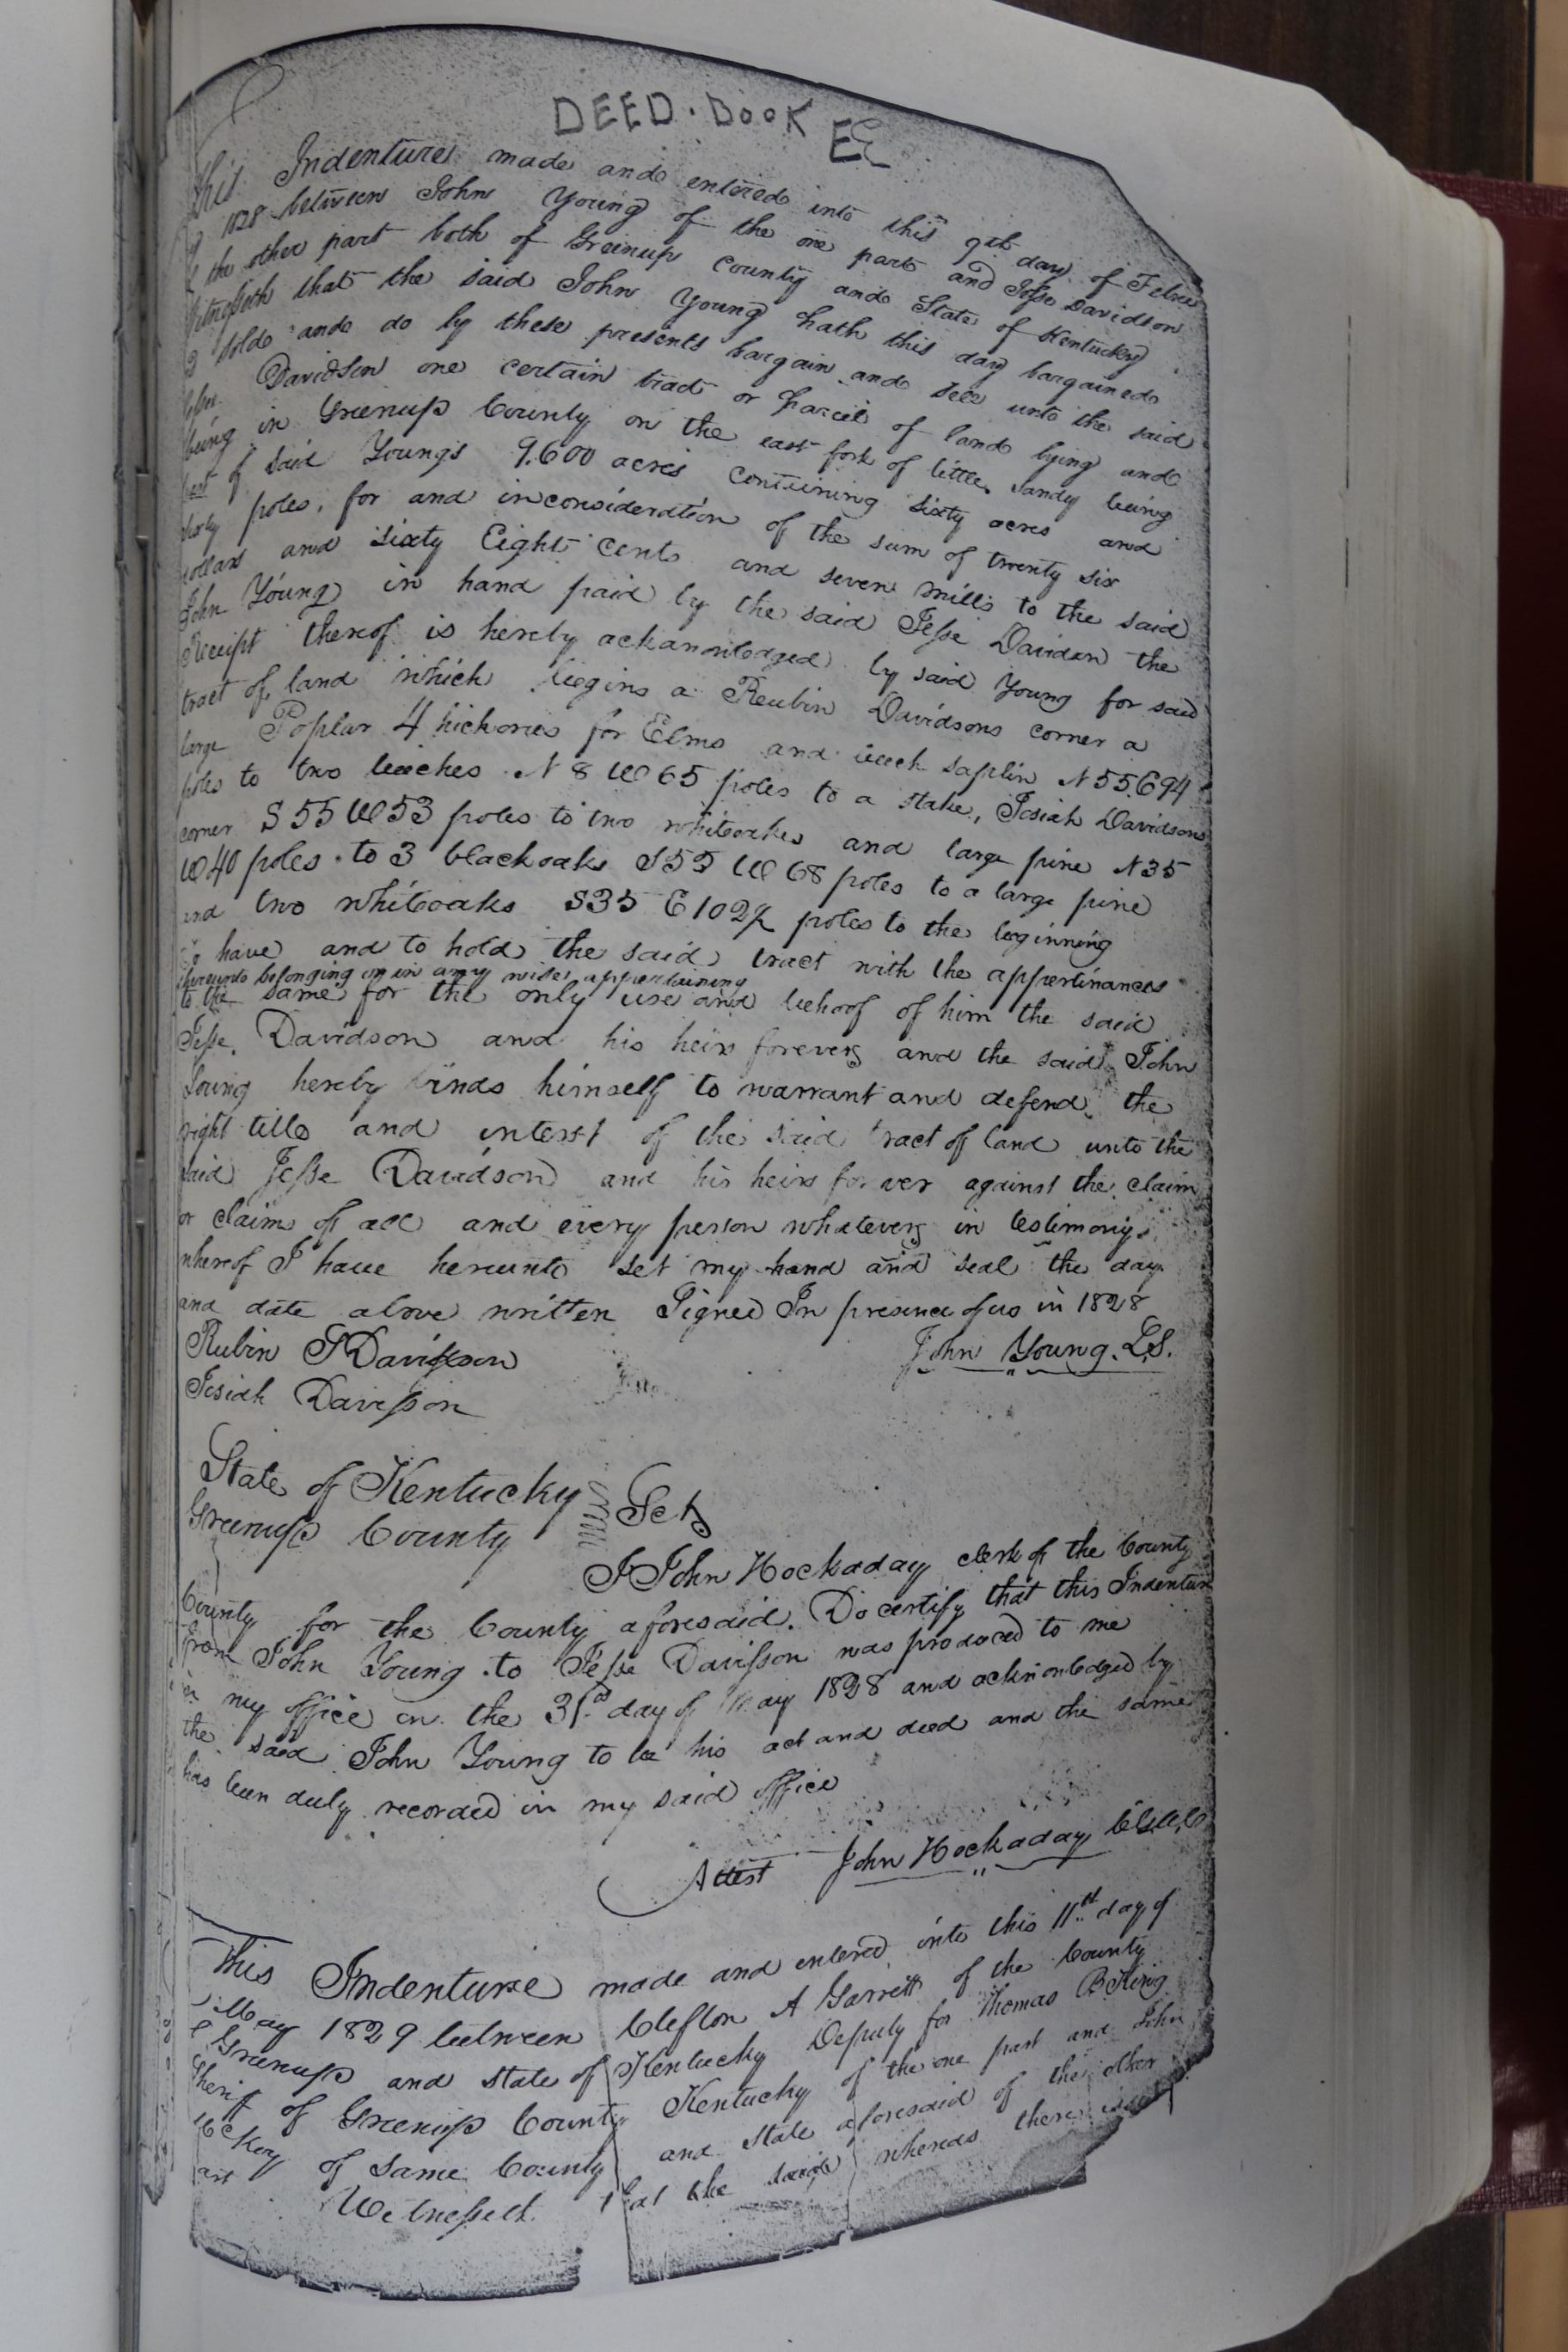 DEED. BooK EE
This Indenture made and entered into this 9th day of Febru
1828 between John Young of the one part and Jesse Davidson
the other part both of Greenup County and State of Kentucky
Witnesseth that the said John Young hath this day bargained
sold and do by these presents bargain and sell unto the said
Davidson one certain tract or parcel of land lying and
being in Greenup County on the east fork of little Sandy being
part of said Youngs 9.600 acres containing sixty acres and
sixty poles, for and inconsideration of the sum of twenty six
dollars and sixty Eight cents and seven mills to the said
John Young in hand paid by the said Jesse Davidson the
Receipt thereof is hereby acknowledged by said Young for said
tract of land which begins a Reubin Davidsons corner a
large Poplar 4 hickories for Elms and beech saplin N 55 E 94
poles to two beeches N 8 W 65 poles to a stake, Josiah Davidsons
corner S 55 W 53 poles to two whiteoakes and large pine N 35
W 40 poles to 3 blackoaks S 55 W 68 poles to a large pine
and two whiteoaks S 35 E 102 poles to the beginning
to have and to hold the said tract with the appertinances
thereunto belonging or in any wise appertaining
to the same for the only use and behoof of him the said
Jesse Davidson and his heirs forever and the said John
Young hereby binds himself to warrant and defend the
right title and interst of the said tract of land unto the
said Jesse Davidson and his heirs for ver against the claim
or claim of all and every person whatever in testimony
whereof I have hereunto set my hand and seal the day
and date above written Signed In presence of us in 1828
Rubin Davisson John Young. L.S.
Josiah Davisson
State of Kentucky
Greenup County Sct
I John Hockaday clerk of the County
County for the County aforesaid. Do certify that this Indenture
from John Young to Jesse Davisson was produced to me
in my office on the 31st day of May 1828 and acknowledged by
the said John Young to be his act and deed and the same
has been duly recorded in my said office
Attest John Hockaday
This Indenture made and entered into this 11th day of
May 1829 between Clefton A Garrett of the County
of Greenup and state of Kentucky Deputy for Thomas B King
Sheriff of Greenup County Kentucky of the one part and John
of same County and state aforesaid of the other
Witnesseth that the said whereas there